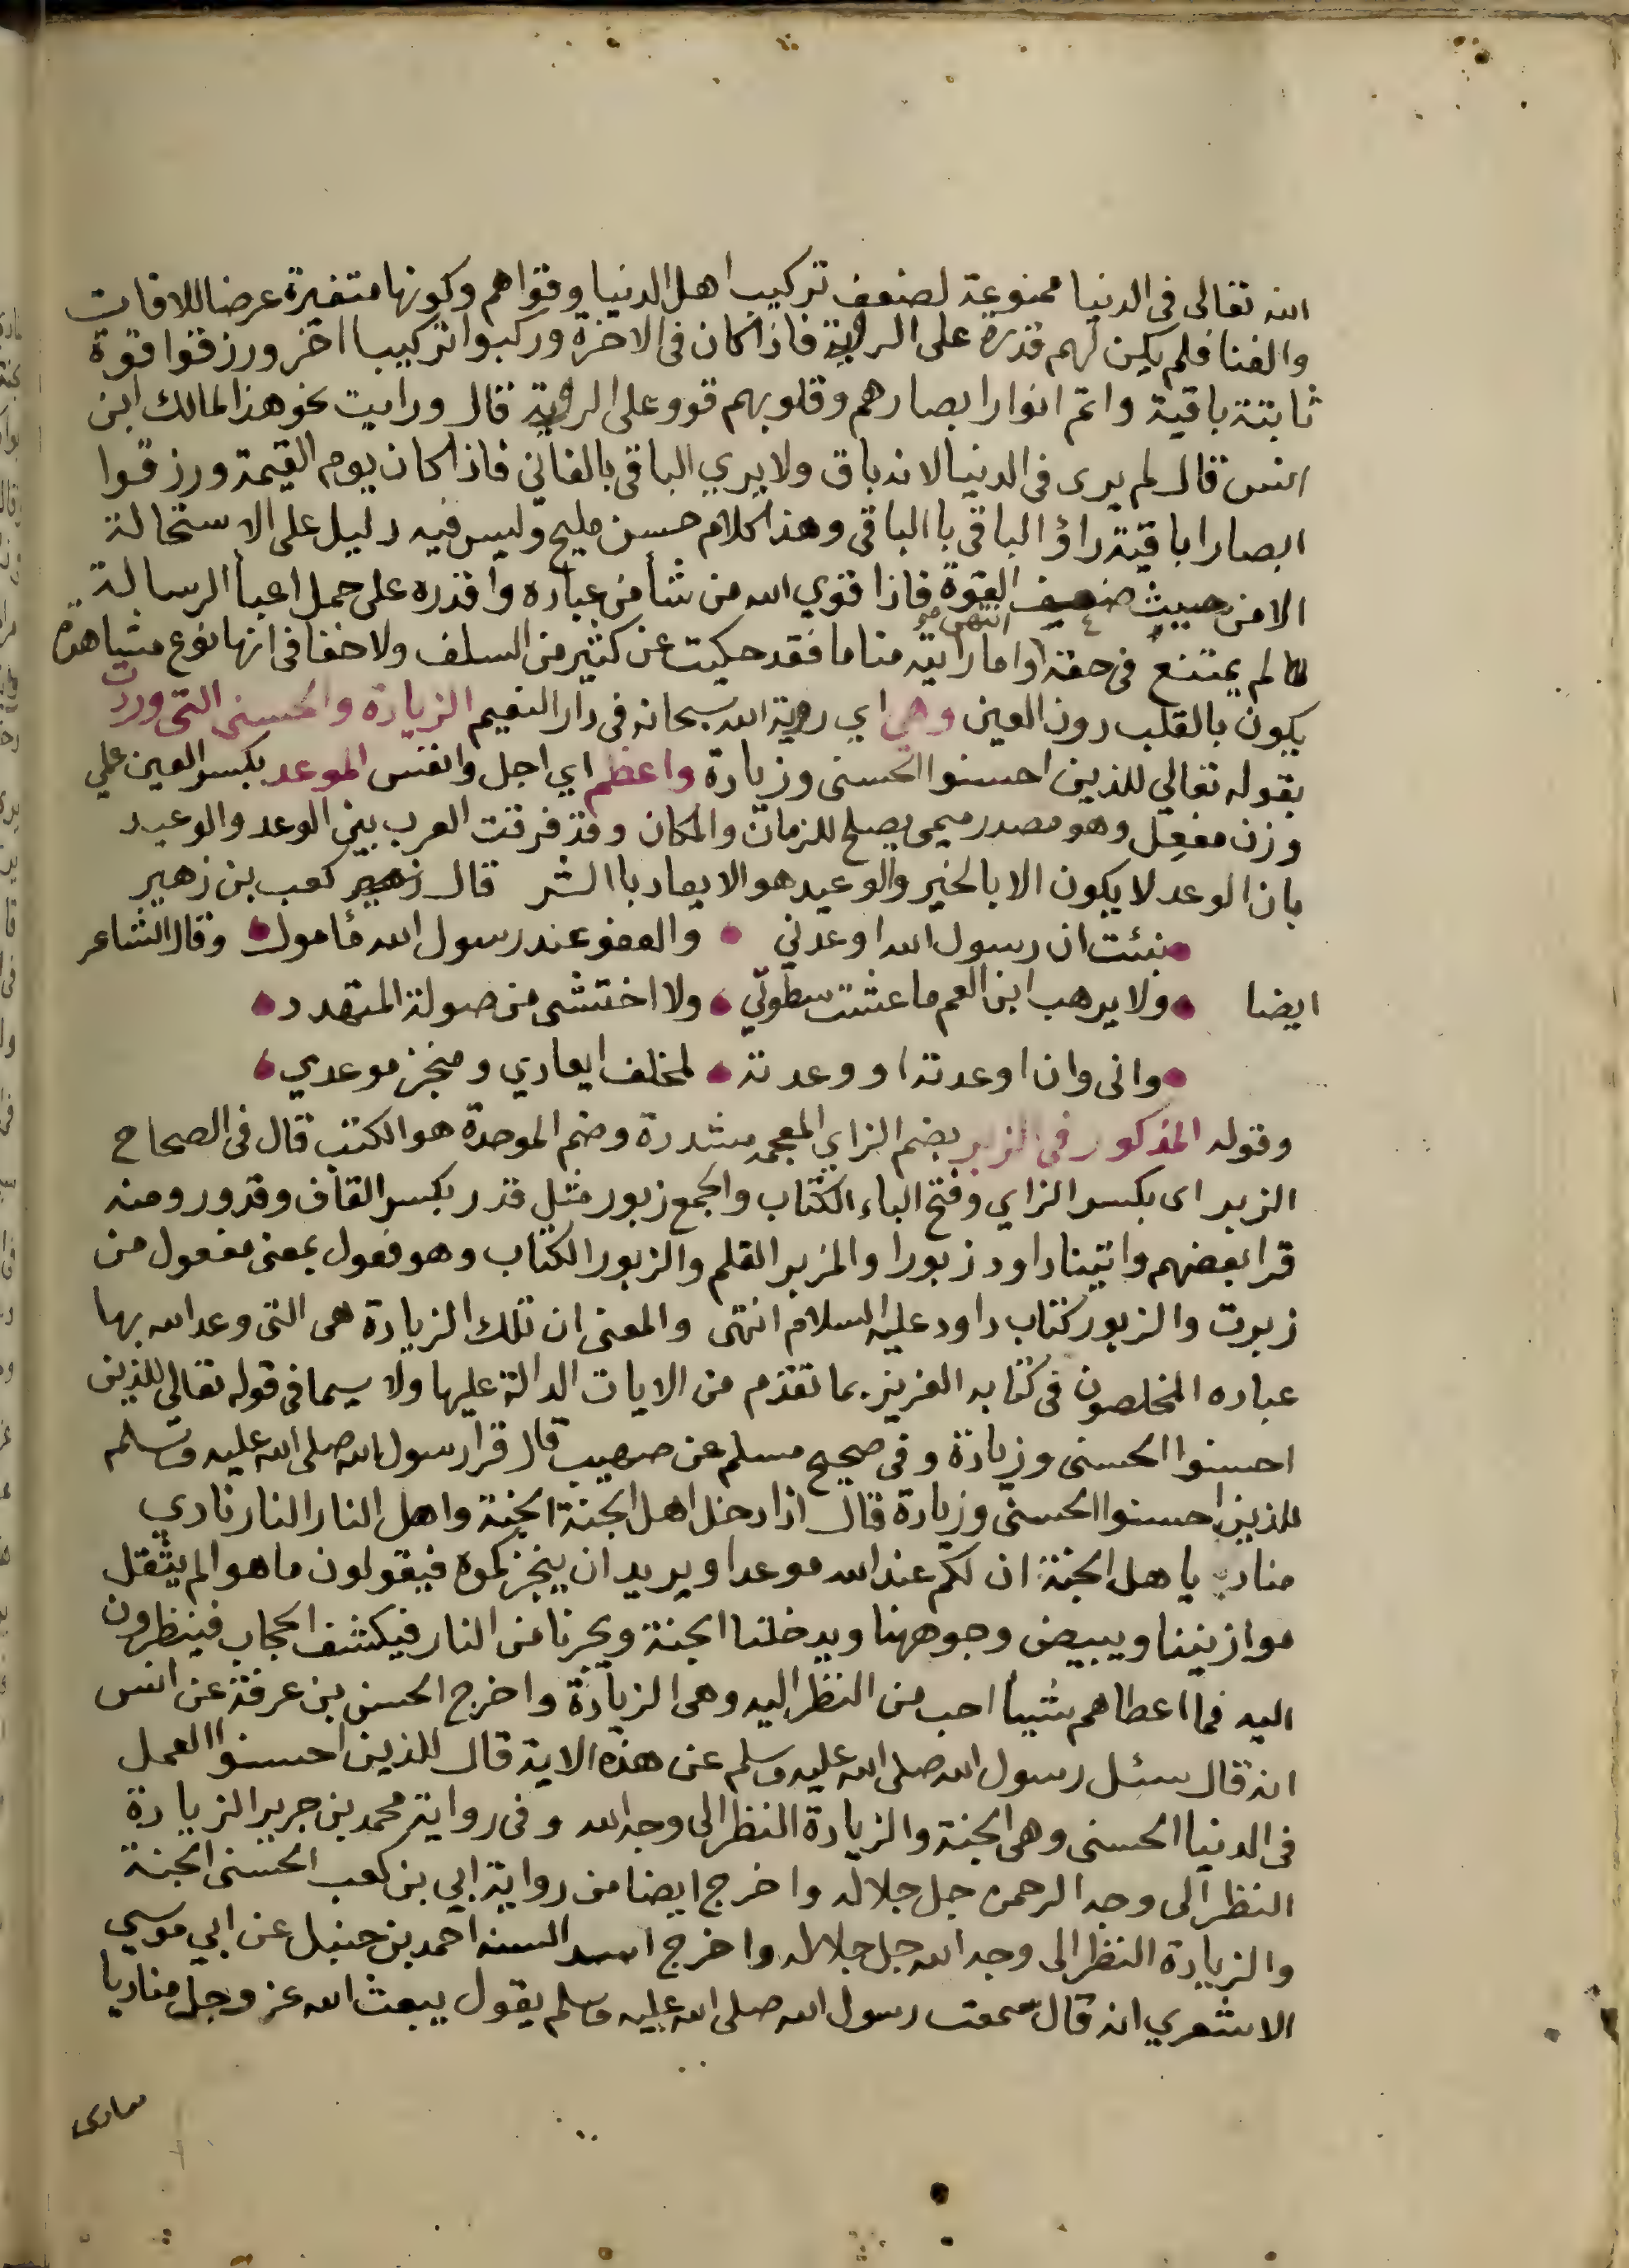 الله تعالى فى الدنيا ممنوعة لضعف تركيب اهل الدنيا وقواهم وكونها متغيرة عرضا للافات
والفنا فلم يكن لهم قدرة على الرؤية فاذا كان فى الاخرة وركبوا تركيبا اخر ورزقوا قوة
ثابتة باقية واتم انوار ابصارهم وقلوبهم قووعلى الرؤية قال ورايت نحو هذا لمالك ابن
انس قال لم يرى فى الدنيا لانه باق ولا يري الباقى بالفاني فاذا كان يوم القيمة ورزقوا
ابصارا باقية راؤ الباقى با الباقى وهذا كلام حسن مليح وليس فيه دليل على الاستحالة
الا من حيث ضعيف القوة فاذا قوي الله من شأ من عباده واقدره على حمل اعبأ الرسالة
لم يمتنع فى حقه انتهى واما رايته مناما فقد حكيت عن كثير من السلف ولا خفا فى انها نوع مشاهدة
يكون بالقلب دون العين وهي اي رؤية الله سبحانه فى دار النعيم الزيادة والحسنى التى وردت
بقوله تعالي للذين احسنوا الحسنى وزيادة واعظم اي اجل وانفس الموعد بكسر العين علي
وزن مفعِل وهو مصدر ميمى يصلح للزمان والمكان وقد فرقت العرب بين الوعد والوعيد
بان الوعد لا يكون الا بالخير والوعيد هو الايعاد با الشر قال كعب بن زهير
نبئت ان رسول الله اوعدني والعفو عند رسول الله مأمول وقال الشاعر
ايضا ولا يرهب ابن العم ما عشت سطوتي ولا اختشى من صولة المتهدد
وانى وان اوعدته او وعدته لمخلف ايعادي ومنجز موعدي
وقوله المذكور فى الزبر بضم الزاي المعجمه مشددة وضم الموحدة هو الكتب قال فى الصحاح
الزبر اى بكسر الزاي وفتح الباء الكتاب والجمع زبور مثل قدر بكسر القاف وقدور ومنه
قرا بعضهم واتينا داود زبورا والمزبر القلم والزبور الكتاب وهو فعول بمعنى مفعول من
زبرت والزبور كتاب داود عليه السلام انتهى والمعنى ان تلك الزيادة هى التى وعد الله بها
عباده المخلصون فى كتابه العزيز بما تقدم من الايات الدالة عليها ولا سيما فى قوله تعالي للذين
احسنوا الحسنى وزيادة وفى صحيح مسلم عن صهيب قال قرأ رسول الله صلى الله عليه وسلم
للذين احسنوا الحسنى وزيادة قال اذا دخل اهل الجنة الجنة واهل النار النار نادي
مناد يا هل الجنة ان لكم عند الله موعدا ويريد ان ينجزكموه فيقولون ما هو الم يثقل
موازيننا ويبيض وجوهنا ويدخلنا الجنة ويجرنا من النار فيكشف الحجاب فينظرون
اليه فما اعطاهم شيبا احب من النظر اليه وهى الزيادة واخرج الحسن بن عرفة عن انس
انه قال سئل رسول الله صلى الله عليه وسلم عن هذه الاية قال للذين احسنوا العمل
فى الدنيا الحسنى وهى الجنة والزيادة النظر الى وجه الله وفى رواية محمد بن جرير الزيادة
النظر الى وجه الرحمن جل جلاله واخرج ايضا من رواية ابي بن كعب الحسنى الجنة
والزيادة النظر الى وجه الله جل جلاله واخرج السنه احمد بن حنبل عن ابي موسي
الاشعري انه قال سمعت رسول الله صلى الله عليه وسلم يقول يبعث الله عز وجل مناديا